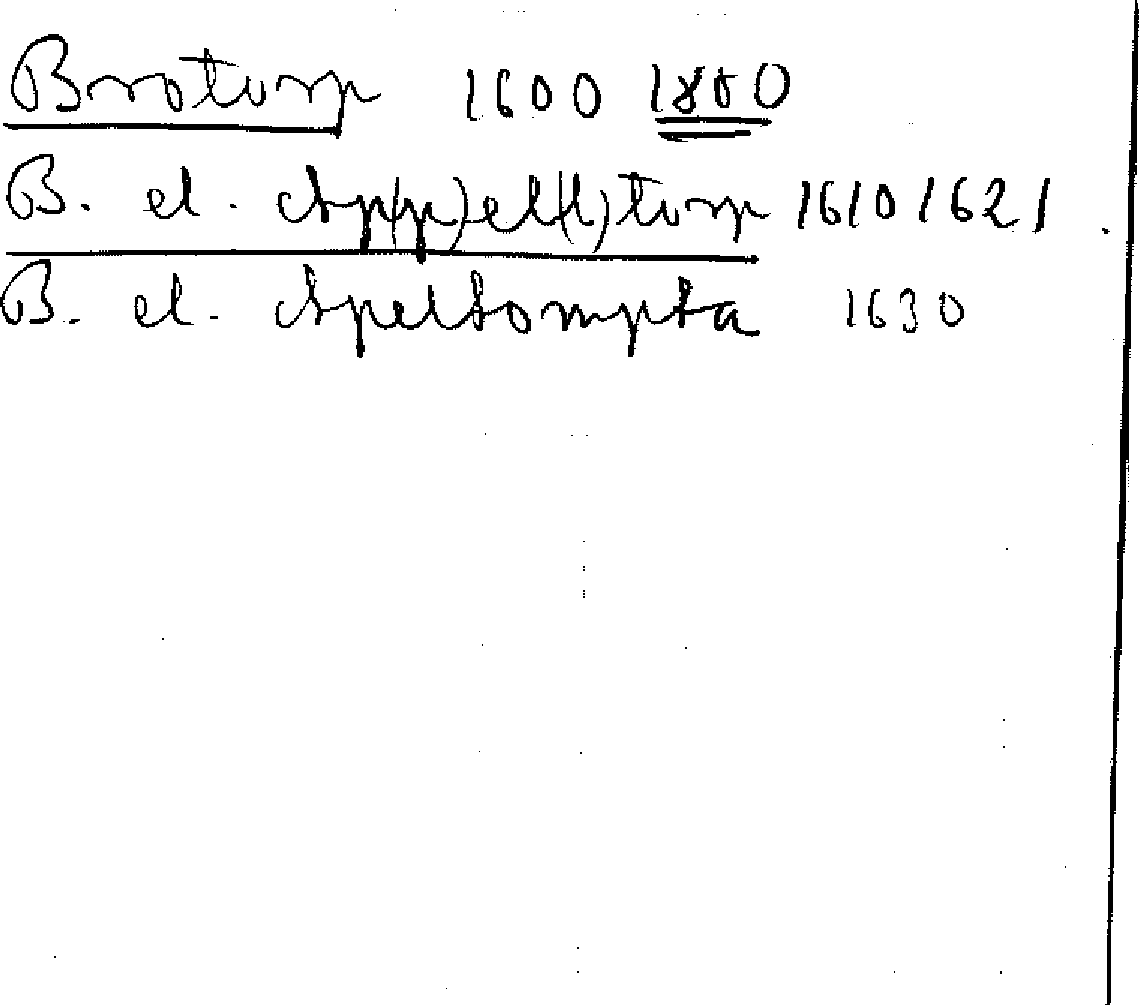 Brotorp 1600 1800
B. el. Ap(p)el(l)torp 1610 1621
B. el. Apeltompta 1630